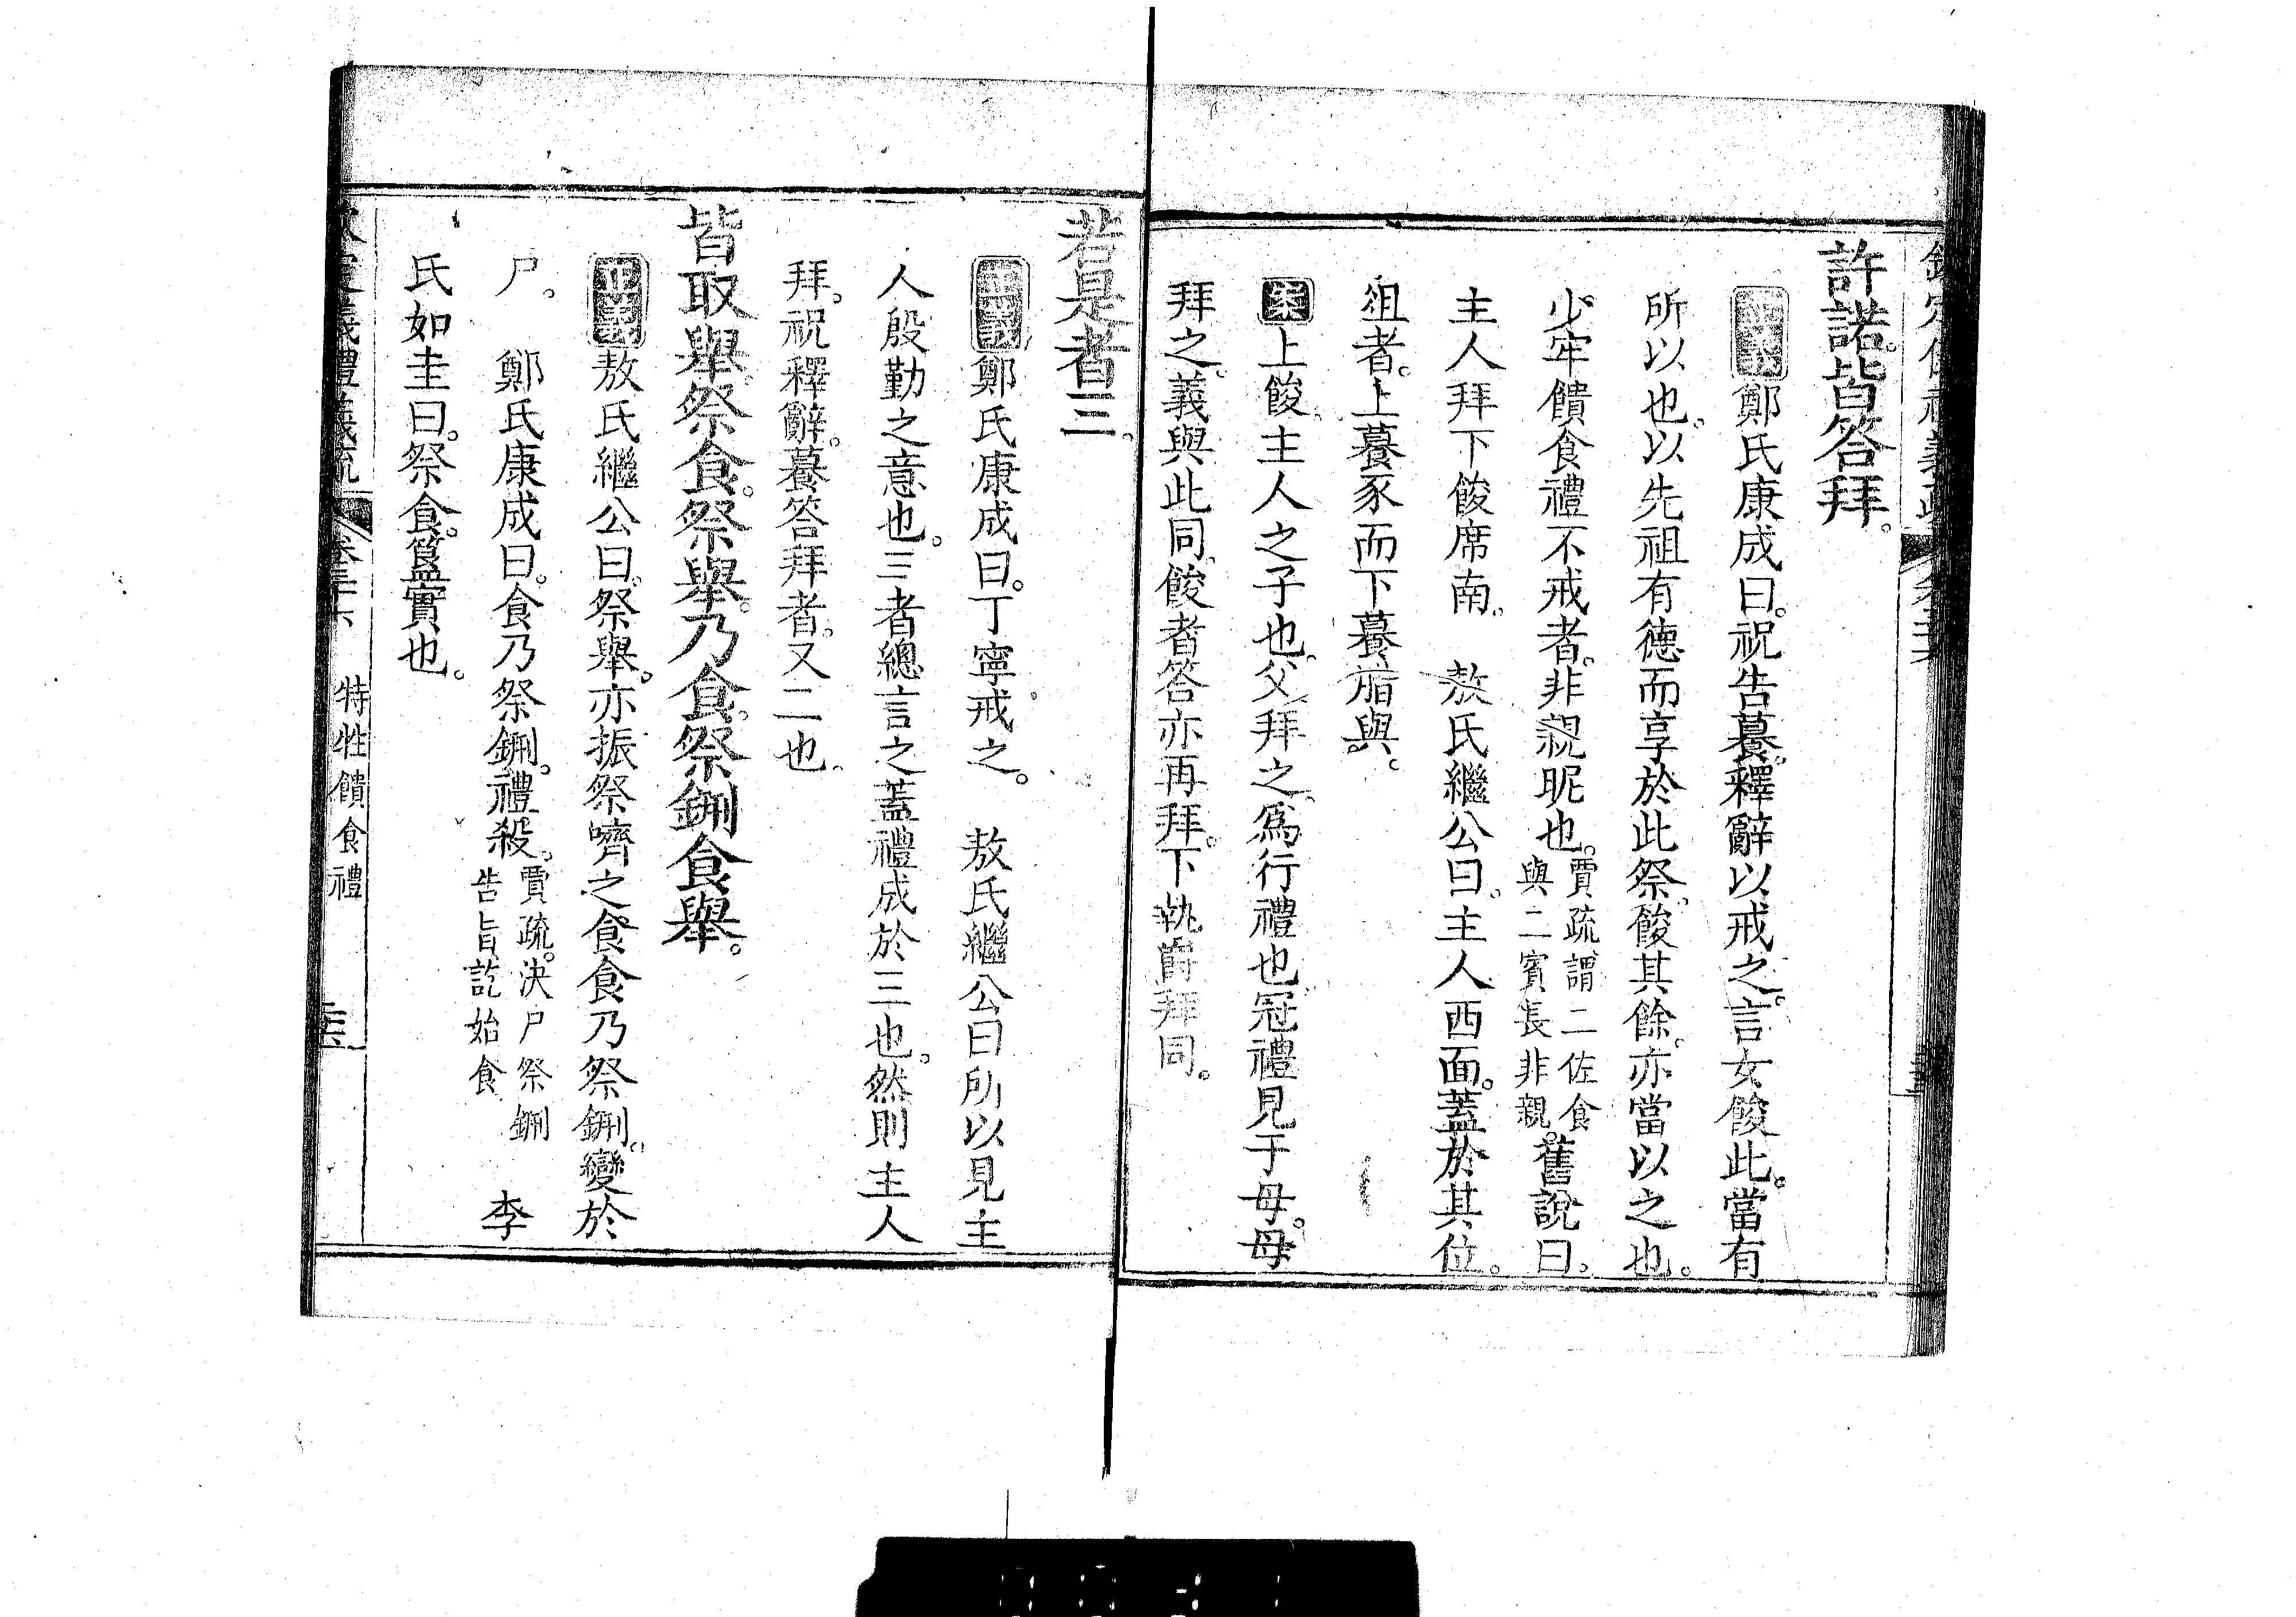 許諾。皆答拜。
正義鄭氏康成曰。祝告養。釋辭以戒之。言女餕此。當有
所以也。以先祖有德而享於此祭。餕其餘。亦當以之也。
少牢饋食禮不戒者。非親昵也。賈疏。謂二佐食與二賓長非親。舊說曰。
主人拜下餕席南。　敖氏繼公曰。主人西面。蓋於其位。
俎者。上養豕而下養腊與。
案上餕。主人之子也。父拜之。為行禮也。冠禮見于母。母
拜之。義與此同。餕者答亦再拜。下執爵拜同。
若是者三。
正義鄭氏康成曰。丁寧戒之。　敖氏繼公曰所以見主
人殷勤之意也。三者總言之蓋禮成於三也。然則主人
拜。祝釋辭。養答拜者。又二也。
皆取舉。祭食。祭舉。乃食。祭鉶食舉。
正義敖氏繼公曰。祭舉。亦振祭嚌之食食乃祭鉶。變於
尸。　鄭氏康成曰。食乃祭鉶。禮殺。賈疏。決尸祭鉶告旨訖始食　李
氏如圭曰。祭食。簋實也。
特牲饋食禮